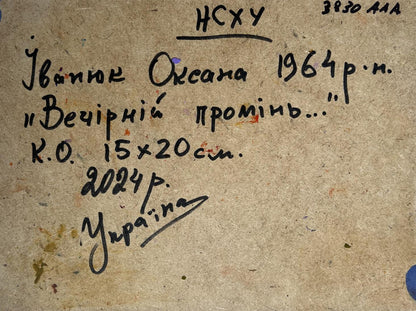 НСХУ 3830 ААА
Іванюк Оксана 1964 р.н.
"Вечірній промінь..."
К.О. 15х20 см.
2024 р.
Україна